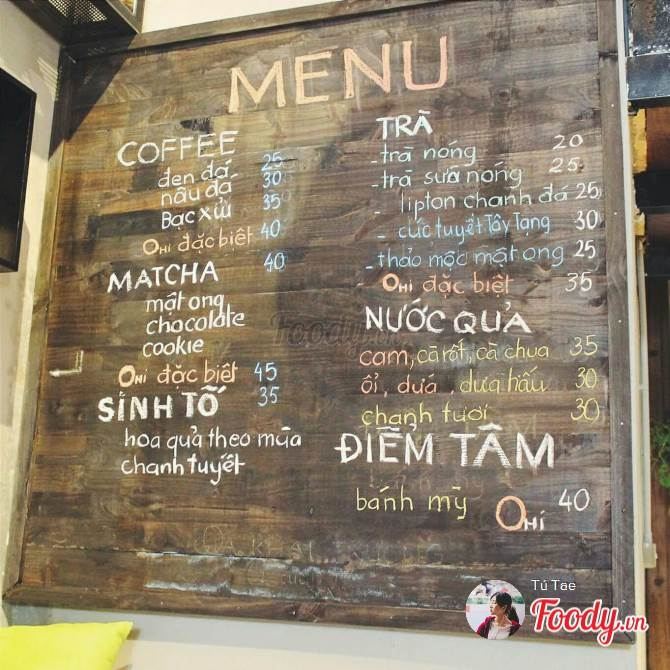 MENU
COFFEE
đen đá 25
nâu đá 30
Bạc xửi 35
OHI đặc biệt 40
MATCHA 40
mật ong
chocolate
cookie
OHI đặc biệt 45
SINH TỐ 35
hoa quả theo mùa
chanh tuyết
TRÀ
- trà nóng 20
- trà sữa nóng 25
- lipton chanh đá 25
- cúc tuyết Tây Tạng 30
- thảo mộc mật ong 25
- OHI đặc biệt 35
NƯỚC QUẢ
cam, cà rốt, cà chua 35
ổi, dứa, dưa hấu 30
chanh tươi 30
ĐIỂM TÂM
bánh mỳ OHI 40
Foody.vn
Tú Tae
Foody.vn